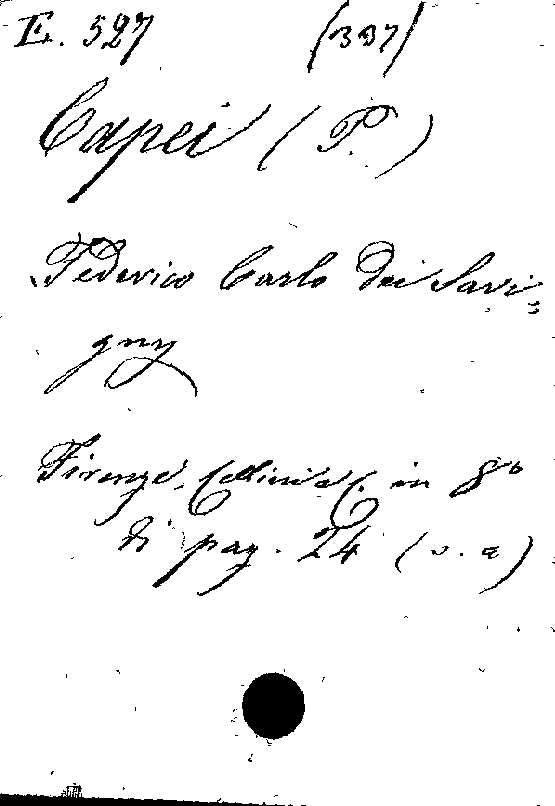 E. 527 (337)
Capei (P.)
Federico Carlo Dei Savi=
gny
Firenze, Cellini e C. in 8°
di pag. 24 (s. a)